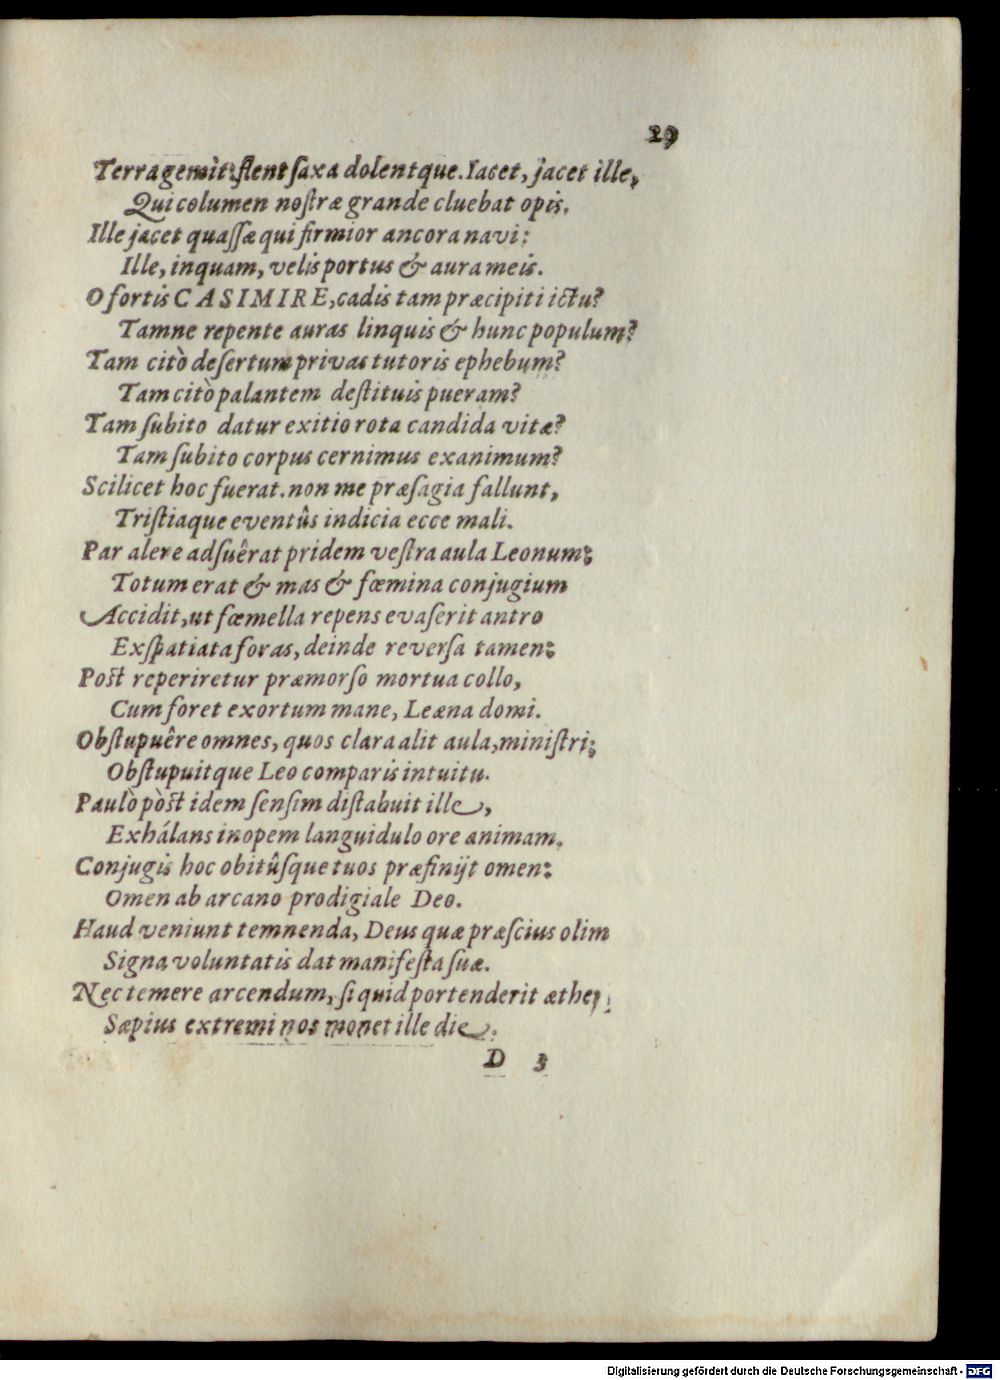 29
Terra gemit: flent saxa dolentque. Iacet, jacet ille,
Qui columen nostræ grande cluebat opis.
Ille jacet quassæ qui firmior ancora navi:
Ille, inquam, velis portus & aura meis.
O fortis CASIMIRE, cadis tam præcipiti ictu?
Tamne repente auras linquis & hunc populum?
Tam citò desertum privas tutoris ephebum?
Tam citò palantem destituis pueram?
Tam subito datur exitio rota candida vitæ?
Tam subito corpus cernimus exanimum?
Scilicet hoc fuerat. non me præsagia fallunt,
Tristiaque eventûs indicia ecce mali.
Par alere adsuêrat pridem vestra aula Leonum;
Totum erat & mas & fœmina conjugium
Accidit, ut fœmella repens evaserit antro
Exspatiata foras, deinde reversa tamen;
Post reperiretur præmorso mortua collo,
Cum foret exortum mane, Leæna domi.
Obstupuêre omnes, quos clara alit aula, ministri;
Obstupuitque Leo comparis intuitu.
Paulò pòst idem sensim distabuit ille,
Exhálans inopem languidulo ore animam.
Conjugis hoc obitûsque tuos præfinijt omen:
Omen ab arcano prodigiale Deo.
Haud veniunt temnenda, Deus quæ præscius olim
Signa voluntatis dat manifesta suæ.
Nec temere arcendum, si quid portenderit æther,
Sæpius extremi nos monet ille die.
D 3
Digitalisierung gefördert durch die Deutsche Forschungsgemeinschaft - DFG